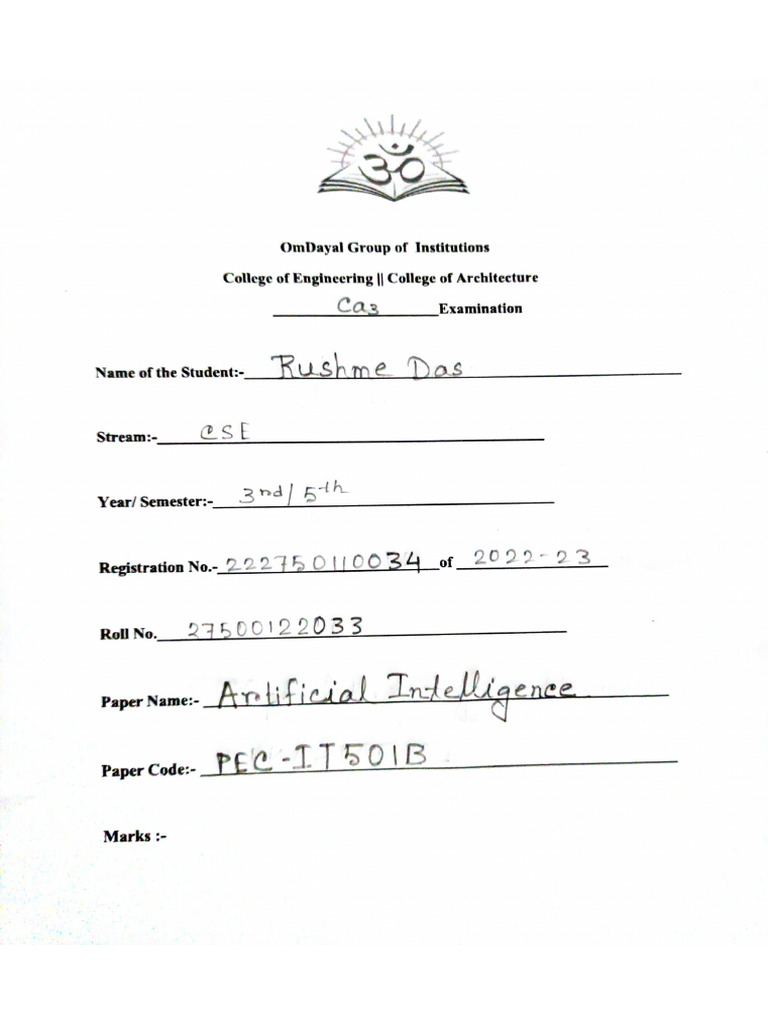 ॐ
OmDayal Group of Institutions
College of Engineering || College of Architecture
Ca3 Examination
Name of the Student:- Rushme Das
Stream:- CSE
Year/ Semester:- 3rd/ 5th
Registration No.- 222750110034 of 2022-23
Roll No. 27500122033
Paper Name:- Artificial Intelligence
Paper Code:- PEC-IT501B
Marks :-